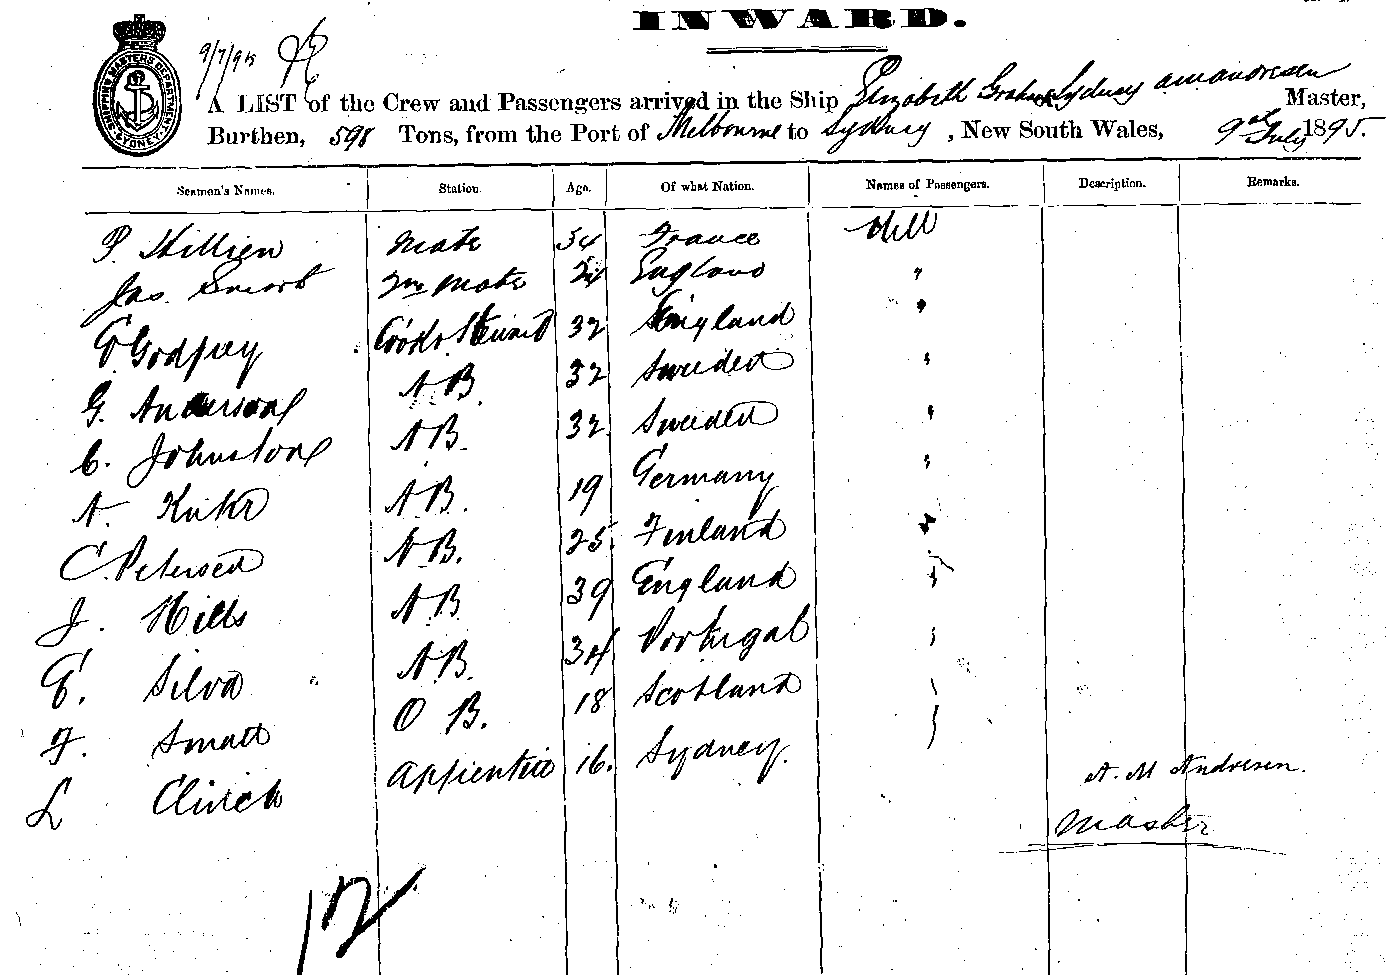 INWARD.
9/7/95
SHIPPING MASTERS DEPARTMENT SYDNEY
A LIST of the Crew and Passengers arrived in the Ship Elizabeth Graham Sydney AM Andresen Master,
Burthen, 598 Tons, from the Port of Melbourne to Sydney, New South Wales, 9th July 1895.
Seamen's Names. Station. Age. Of what Nation. Names of Passengers. Description. Remarks.
P. Mate 34 France Nill
Jas. Smart 2nd Mate 24 England "
Godfrey Cook & Steward 32 England "
G. Anderson AB. 32 Sweden "
C. Johnston AB. 32 Sweden "
A. AB. 19 Germany "
C. Petersen AB. 25. Finland "
J. Hills AB 39 England "
E. Silva AB. 34 Portugal "
F. Small O B. 18 Scotland
L Clinch Apprentice 16. Sydney.
A. M Andresen.
Master
12